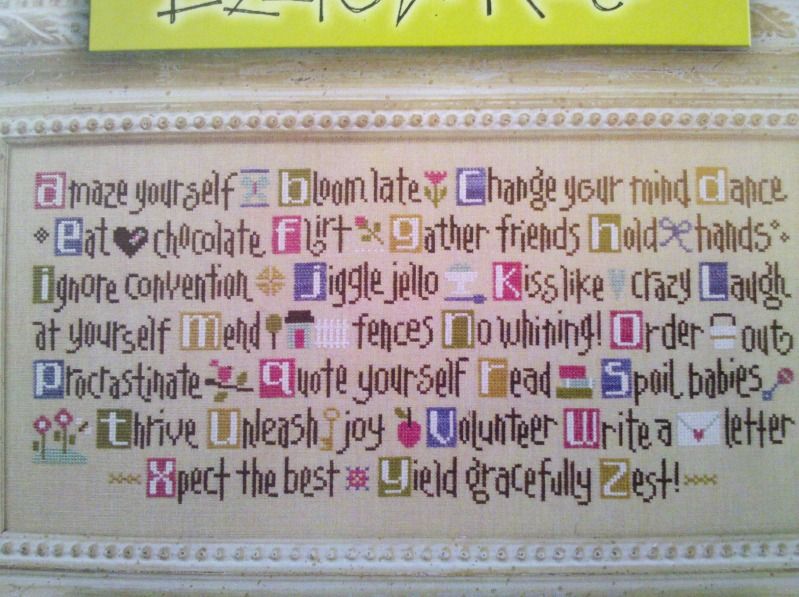 amaze yourself bloom late Change your mind dance
eat chocolate flirt gather friends hold hands
ignore convention jiggle jello Kiss like crazy Laugh
at yourself mend fences no whining! Order out
procrastinate quote yourself read Spoil babies
thrive Unleash joy Volunteer Write a letter
Xpect the best Yield gracefully Zest!